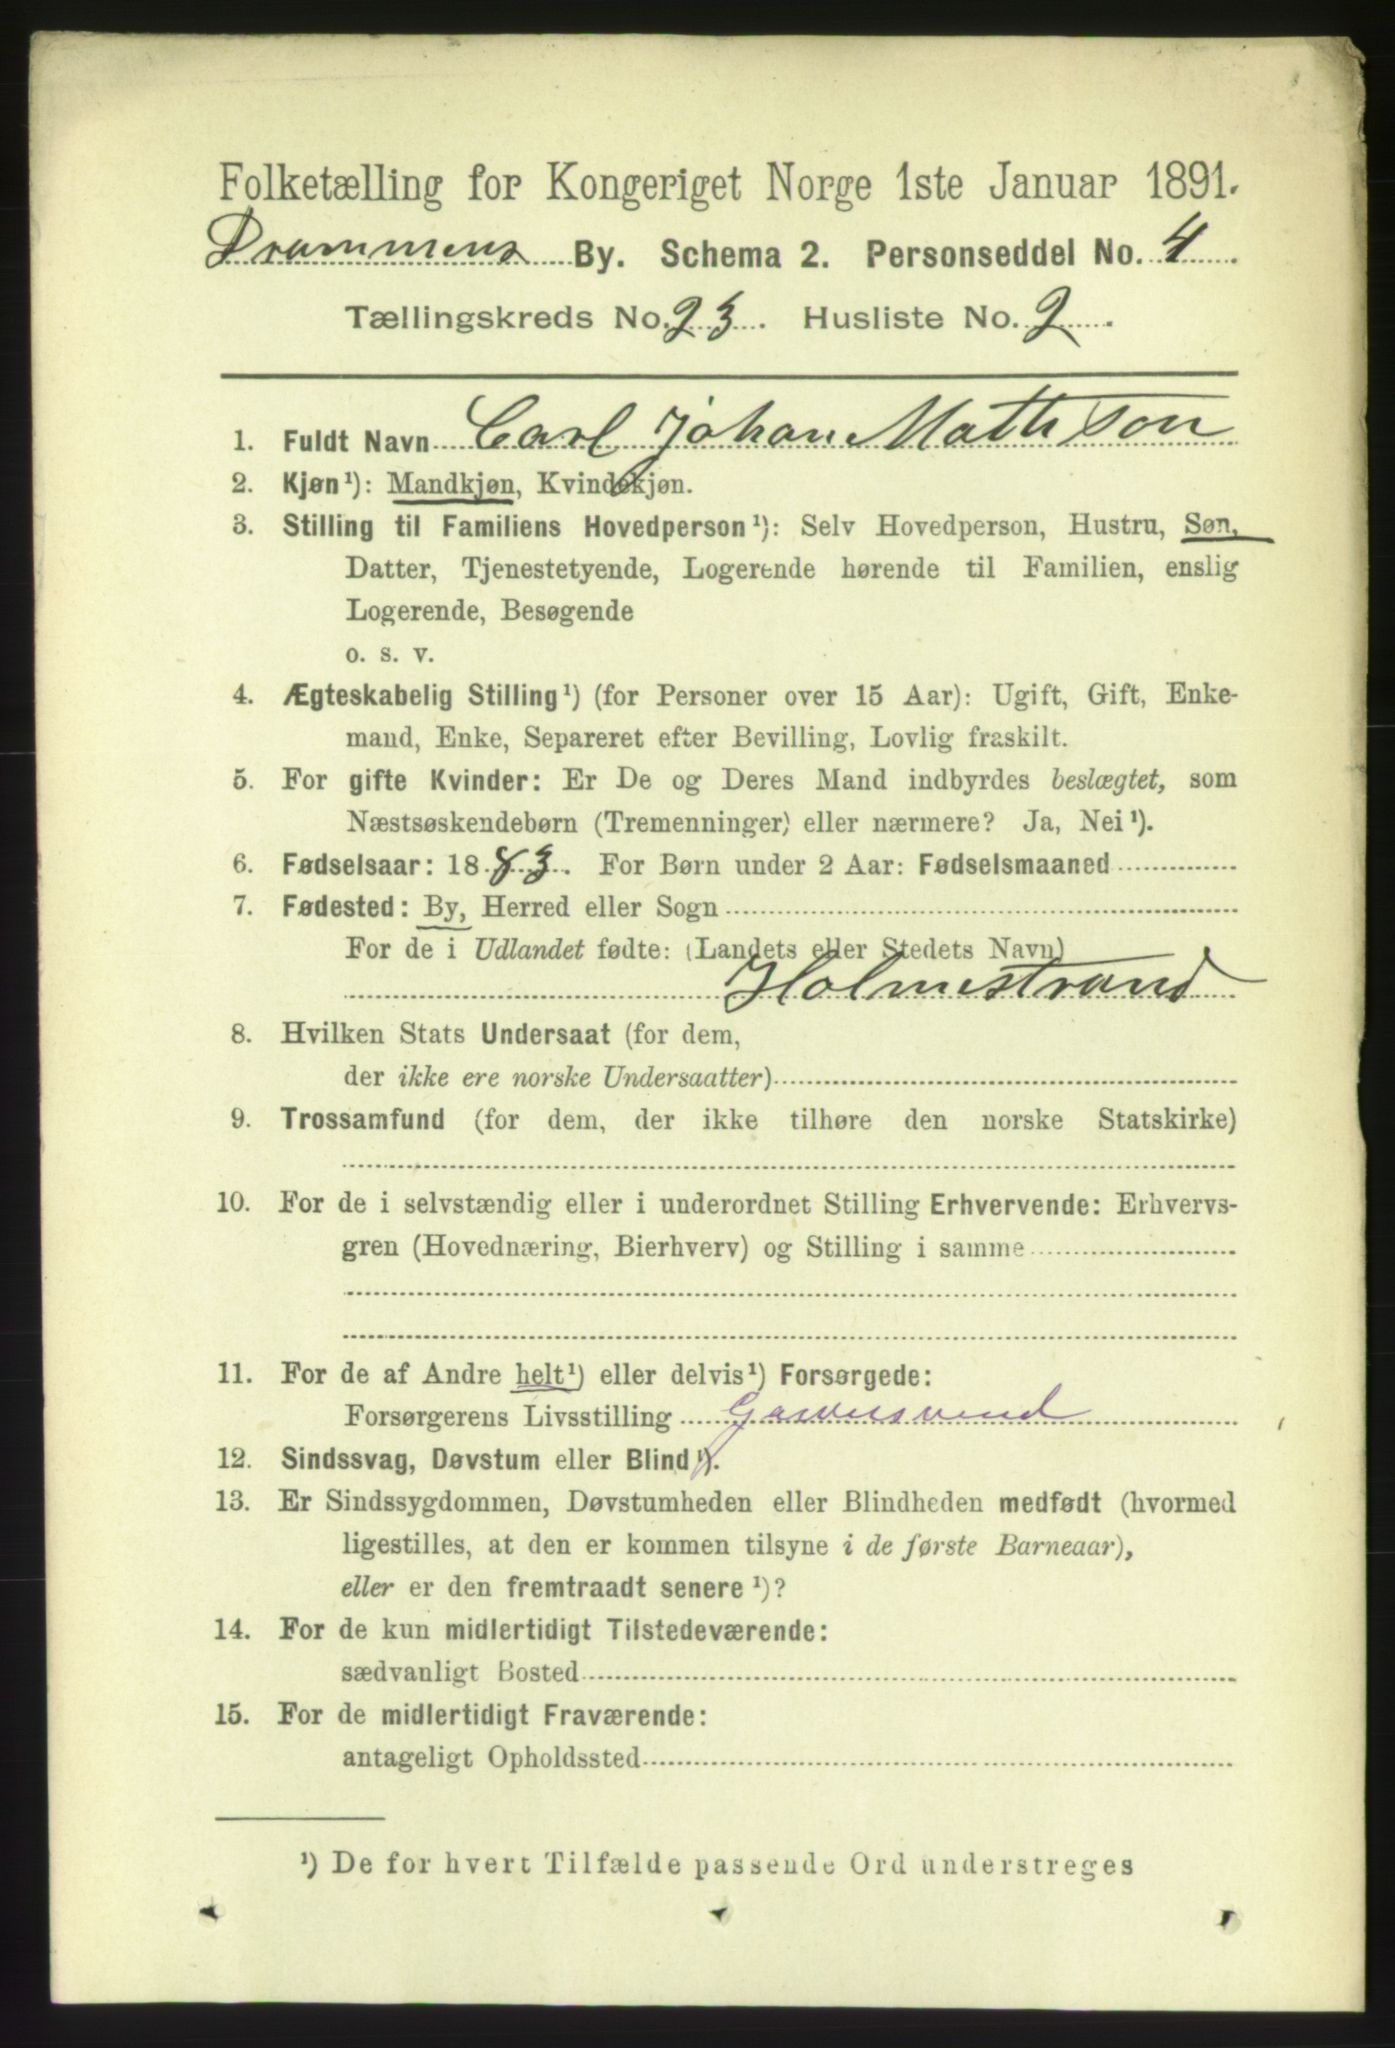 Folketælling for Kongeriget Norge 1ste Januar 1891.
Drammens By. Schema 2. Personseddel No. 4
Tællingskreds No. 23. Husliste No. 2.
1. Fuldt Navn Carl Johan Mathison
2. Kjøn¹): Mandkjøn, Kvindekjøn.
3. Stilling til Familiens Hovedperson¹): Selv Hovedperson, Hustru, Søn,
Datter, Tjenestetyende, Logerende hørende til Familien, enslig
Logerende, Besøgende
o. s. v.
4. Ægteskabelig Stilling¹) (for Personer over 15 Aar): Ugift, Gift, Enke-
mand, Enke, Separeret efter Bevilling, Lovlig fraskilt.
5. For gifte Kvinder: Er De og Deres Mand indbyrdes beslægtet, som
Næstsøskendebørn (Tremenninger) eller nærmere? Ja, Nei¹).
6. Fødselsaar: 1883. For Børn under 2 Aar: Fødselsmaaned
7. Fødested: By, Herred eller Sogn
For de i Udlandet fødte: (Landets eller Stedets Navn)
Holmestrand
8. Hvilken Stats Undersaat (for dem,
der ikke ere norske Undersaatter)
9. Trossamfund (for dem, der ikke tilhøre den norske Statskirke)
10. For de i selvstændig eller i underordnet Stilling Erhvervende: Erhvervs-
gren (Hovednæring, Bierhverv) og Stilling i samme
11. For de af Andre helt¹) eller delvis¹) Forsørgede:
Forsørgerens Livsstilling Garversvend
12. Sindssvag, Døvstum eller Blind¹).
13. Er Sindssygdommen, Døvstumheden eller Blindheden medfødt (hvormed
ligestilles, at den er kommen tilsyne i de første Barneaar),
eller er den fremtraadt senere¹)?
14. For de kun midlertidigt Tilstedeværende:
sædvanligt Bosted
15. For de midlertidigt Fraværende:
antageligt Opholdssted
¹) De for hvert Tilfælde passende Ord understreges